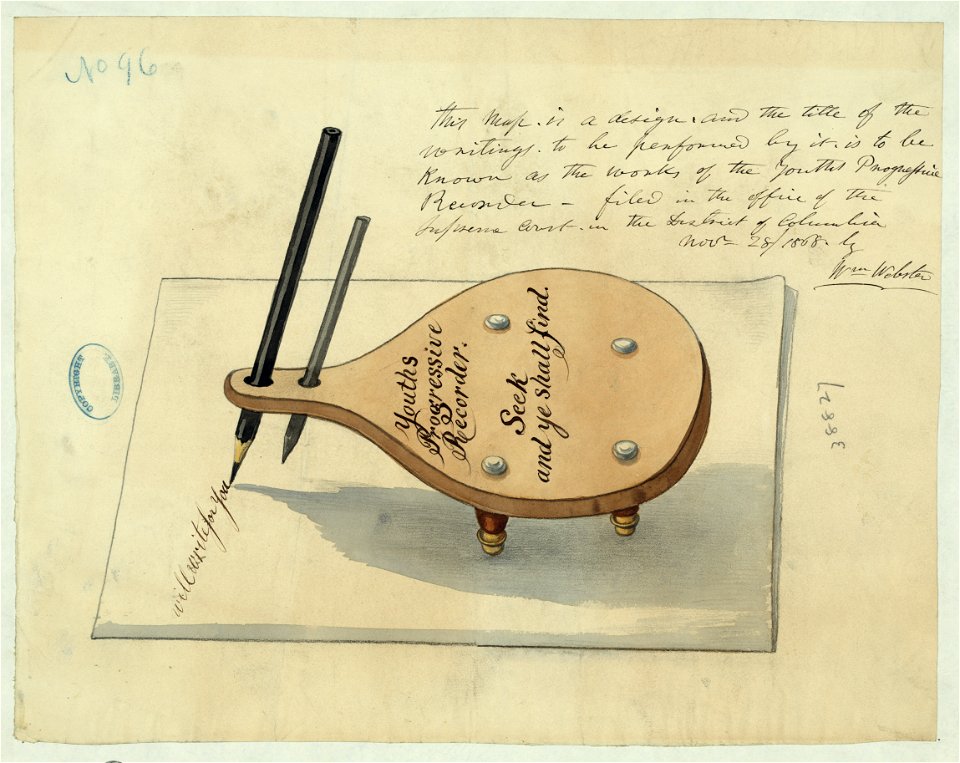 No 96
This Map is a design and the title of the
writings to be performed by it is to be
known as the works of the Youths Progressive
Recorder - filed in the office of the
Supreme Court in the District of Columbia
Novr 28/1868 by
Wm Webster
Youths
Progressive
Recorder.
Seek
and ye shall find.
will write for you
COPYRIGHT
LIBRARY.
38827